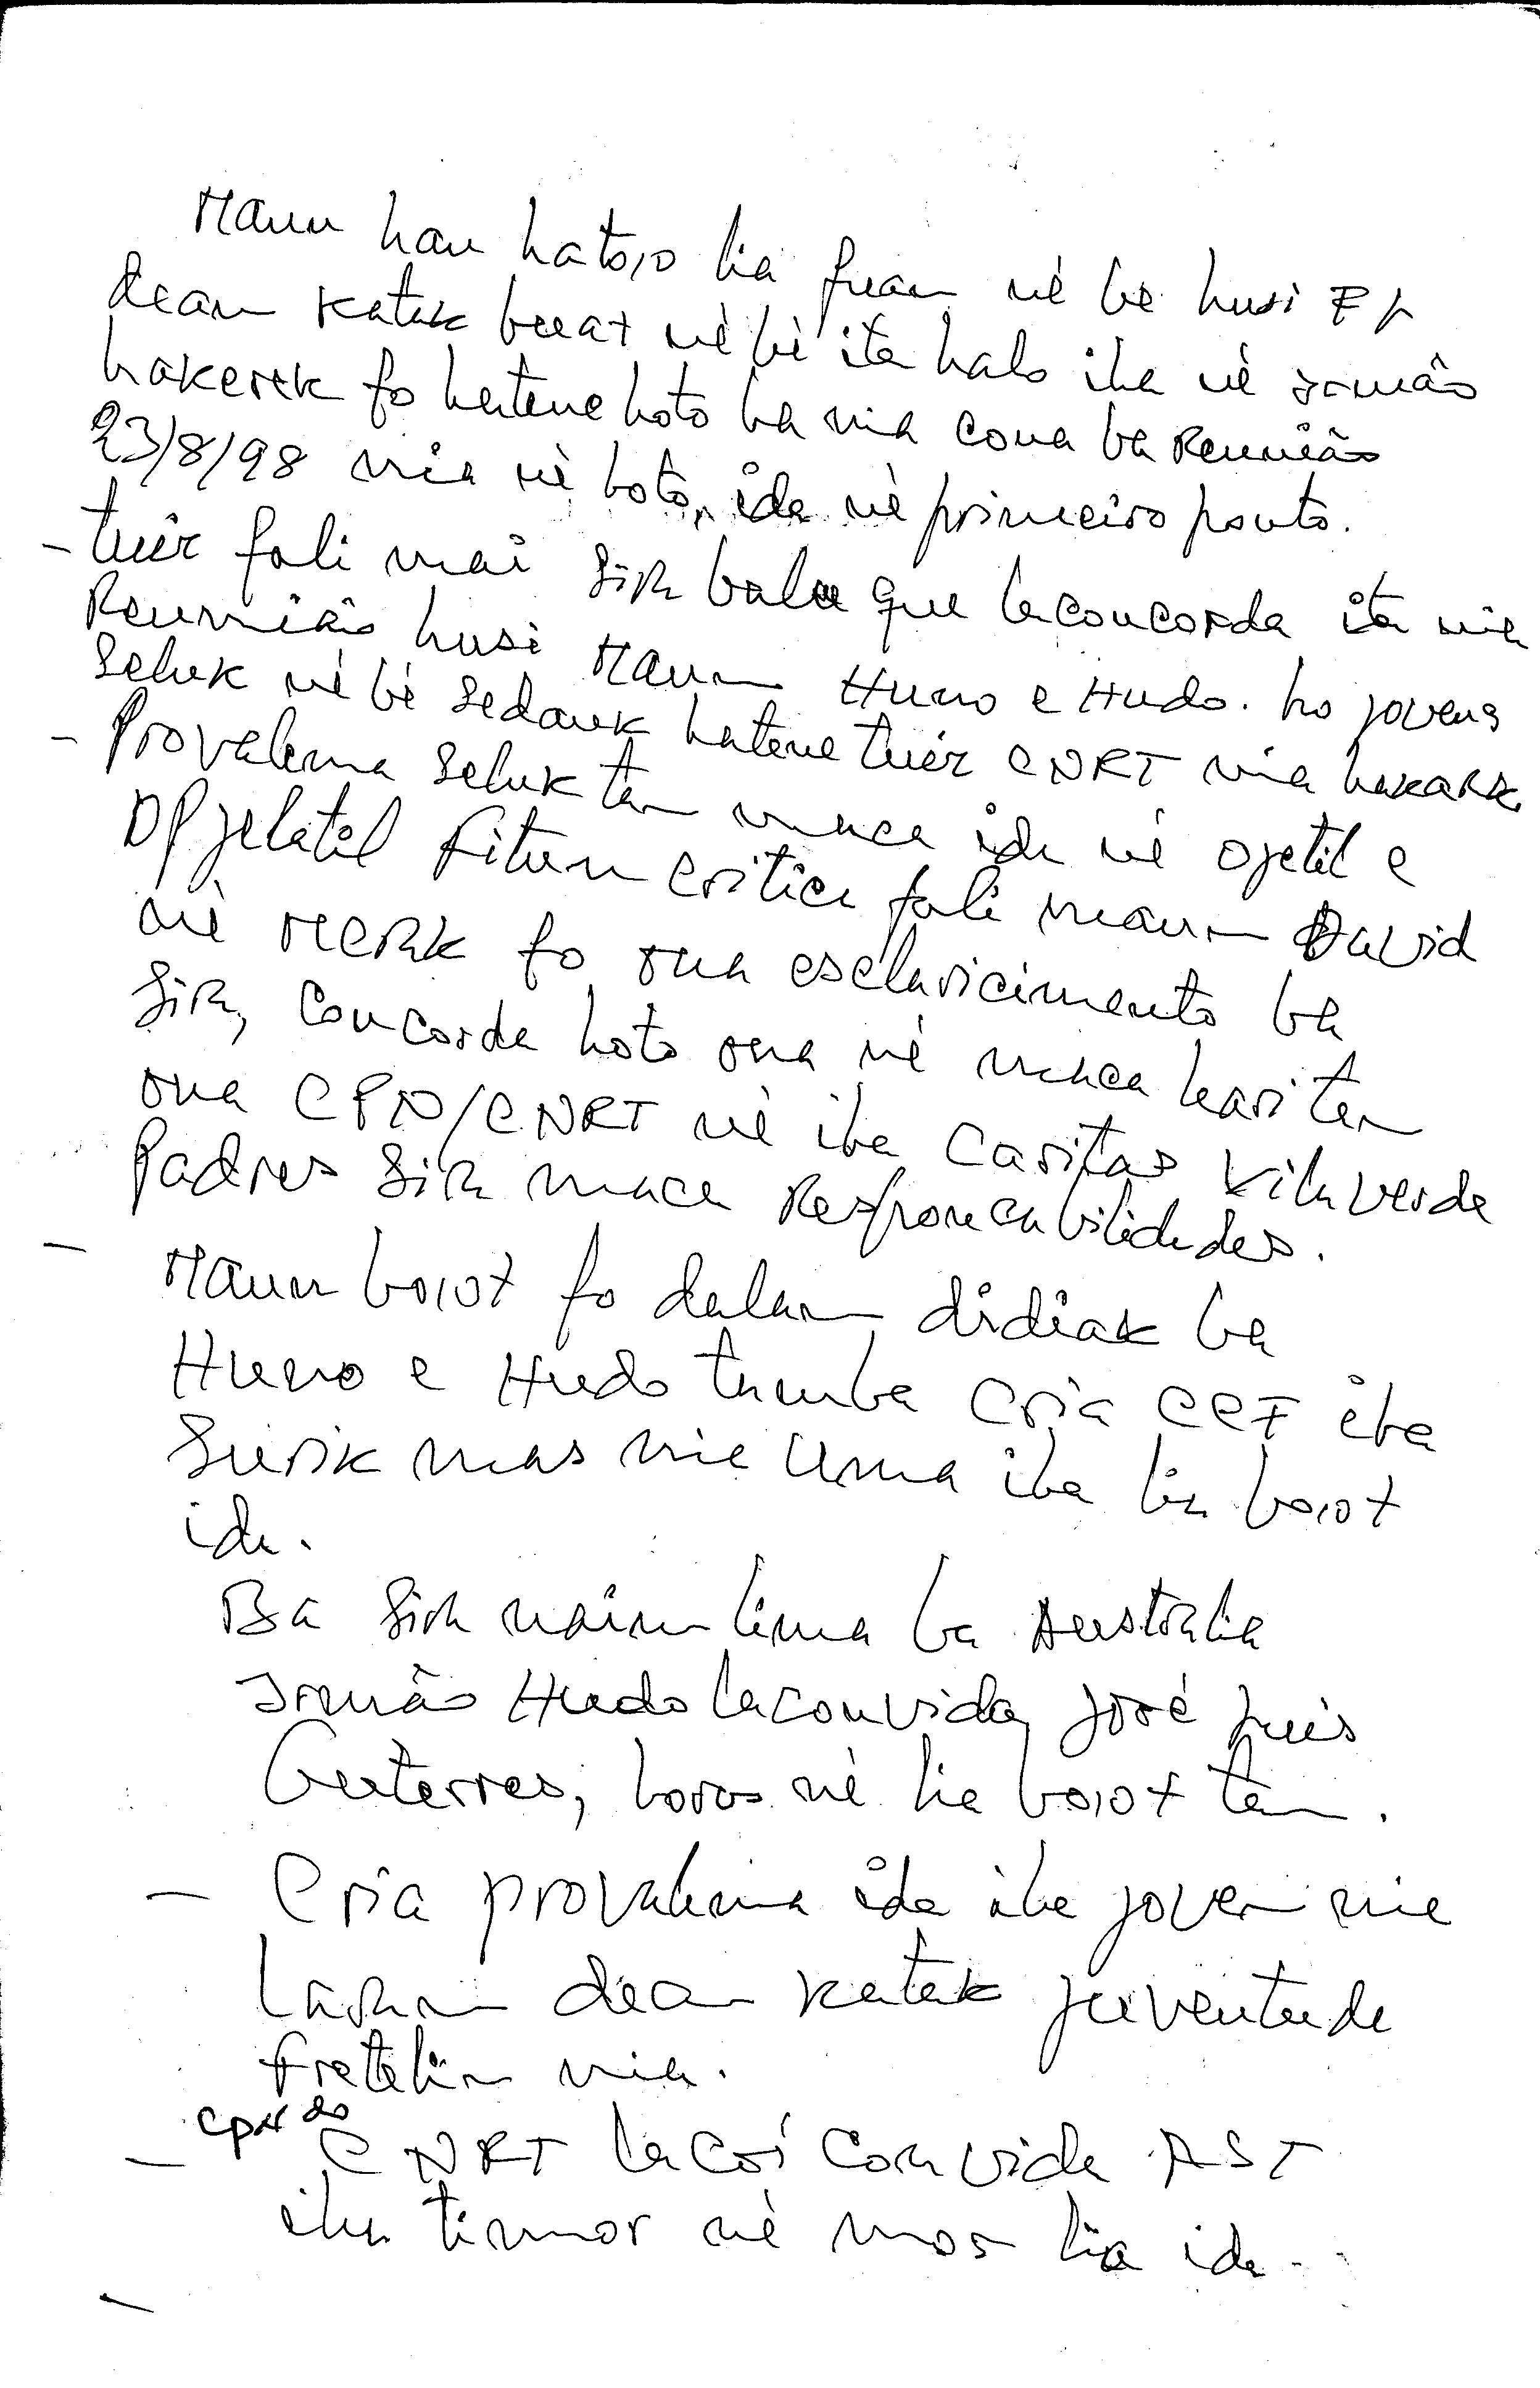 Maun hau hato,o lia fuan nè be husi FL
dean katak buat nè bè ita halo iha nè irmão
hakerek fo hatene hoto ba nia cona ba Reunião
23/8/98 nia nè hoto, ida nè primeiro ponto.
- tuir fali mai sira balu que la concorda ita nia
Reunião husi Maun Huno e Hudo. ho jovens
seluk nè bè sedauk hatene tuir CNRT nia hakarak
- Provalema seluk tan maca ida nè ojetil e
Ofjelatil Fitun critica fali maun David
nè merak fo ona esclaricimento ba
sira, concorda hoto ona nè maca hari tan
ona CPN/CNRT nè iha Caritas Vila verde
Padres sira maca Responcabilidades.
- Maun bo,ot fo dalan didiak ba
Huno e Hudo tamba cria CCF iha
Surik mas nia Uma iha lia bo,ot
ida.
Ba sira nain lima ba Australia
irmão Hudo la convida José Luis
Guterres, horas nè lia bo,ot tan.
- Cria provalema ida iha joven nia
laran dean katak juventude
Fretelin nia.
cpn do
- CNRT la coi convida AST
iha timor nè mos lia ida..
-